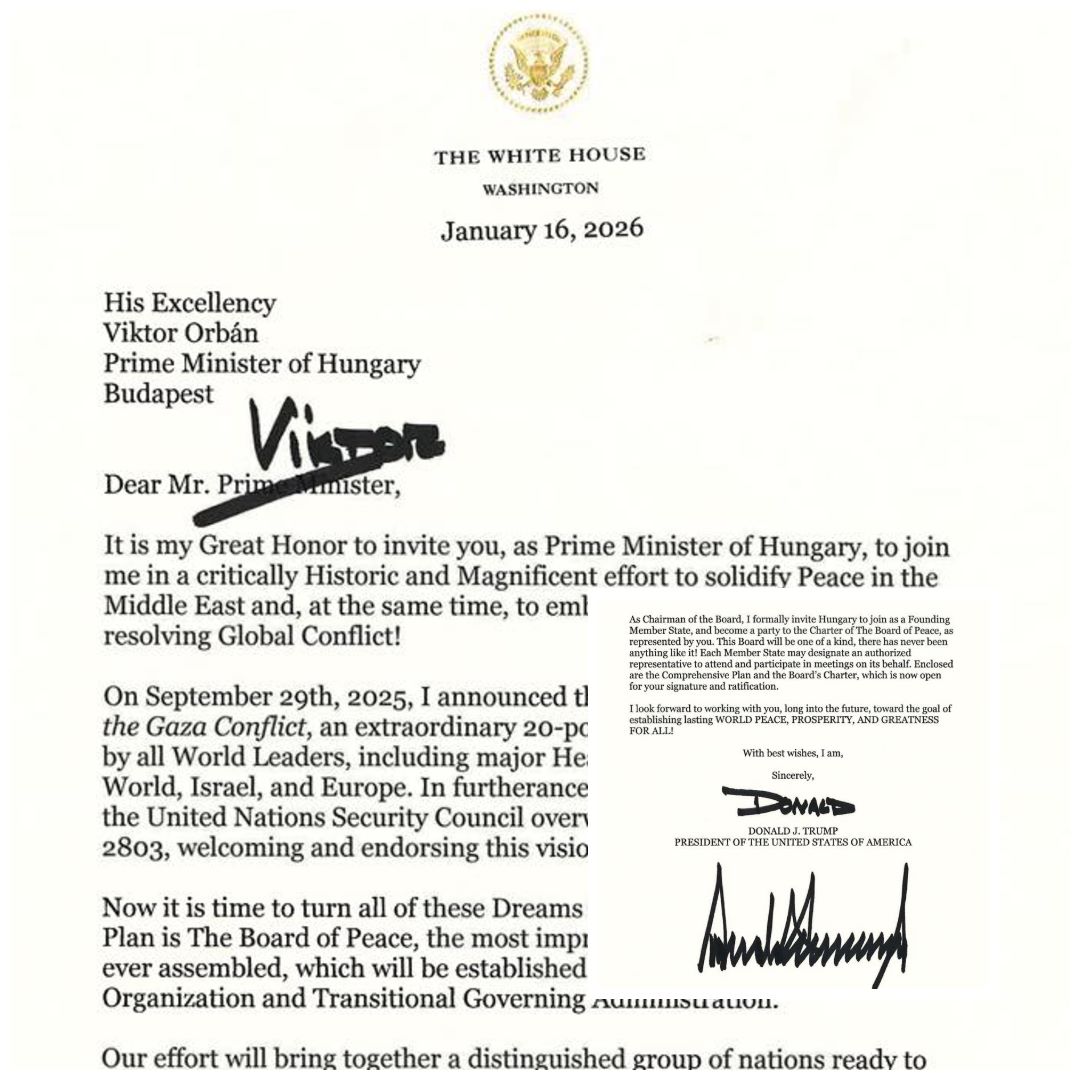 THE WHITE HOUSE
WASHINGTON
January 16, 2026
His Excellency
Viktor Orbán
Prime Minister of Hungary
Budapest
Viktor
Dear Mr. Prime Minister,
It is my Great Honor to invite you, as Prime Minister of Hungary, to join
me in a critically Historic and Magnificent effort to solidify Peace in the
Middle East and, at the same time, to
resolving Global Conflict!
On September 29th, 2025, I announced
the Gaza Conflict, an extraordinary
by all World Leaders, including major
World, Israel, and Europe. In furtherance
the United Nations Security Council
2803, welcoming and endorsing this
Now it is time to turn all of these Dreams
Plan is The Board of Peace, the most
ever assembled, which will be established
Organization and Transitional Governing Administration.
Our effort will bring together a distinguished group of nations ready to
As Chairman of the Board, I formally invite Hungary to join as a Founding
Member State, and become a party to the Charter of The Board of Peace, as
represented by you. This Board will be one of a kind, there has never been
anything like it! Each Member State may designate an authorized
representative to attend and participate in meetings on its behalf. Enclosed
are the Comprehensive Plan and the Board's Charter, which is now open
for your signature and ratification.
I look forward to working with you, long into the future, toward the goal of
establishing lasting WORLD PEACE, PROSPERITY, AND GREATNESS
FOR ALL!
With best wishes, I am,
Sincerely,
DONALD
DONALD J. TRUMP
PRESIDENT OF THE UNITED STATES OF AMERICA